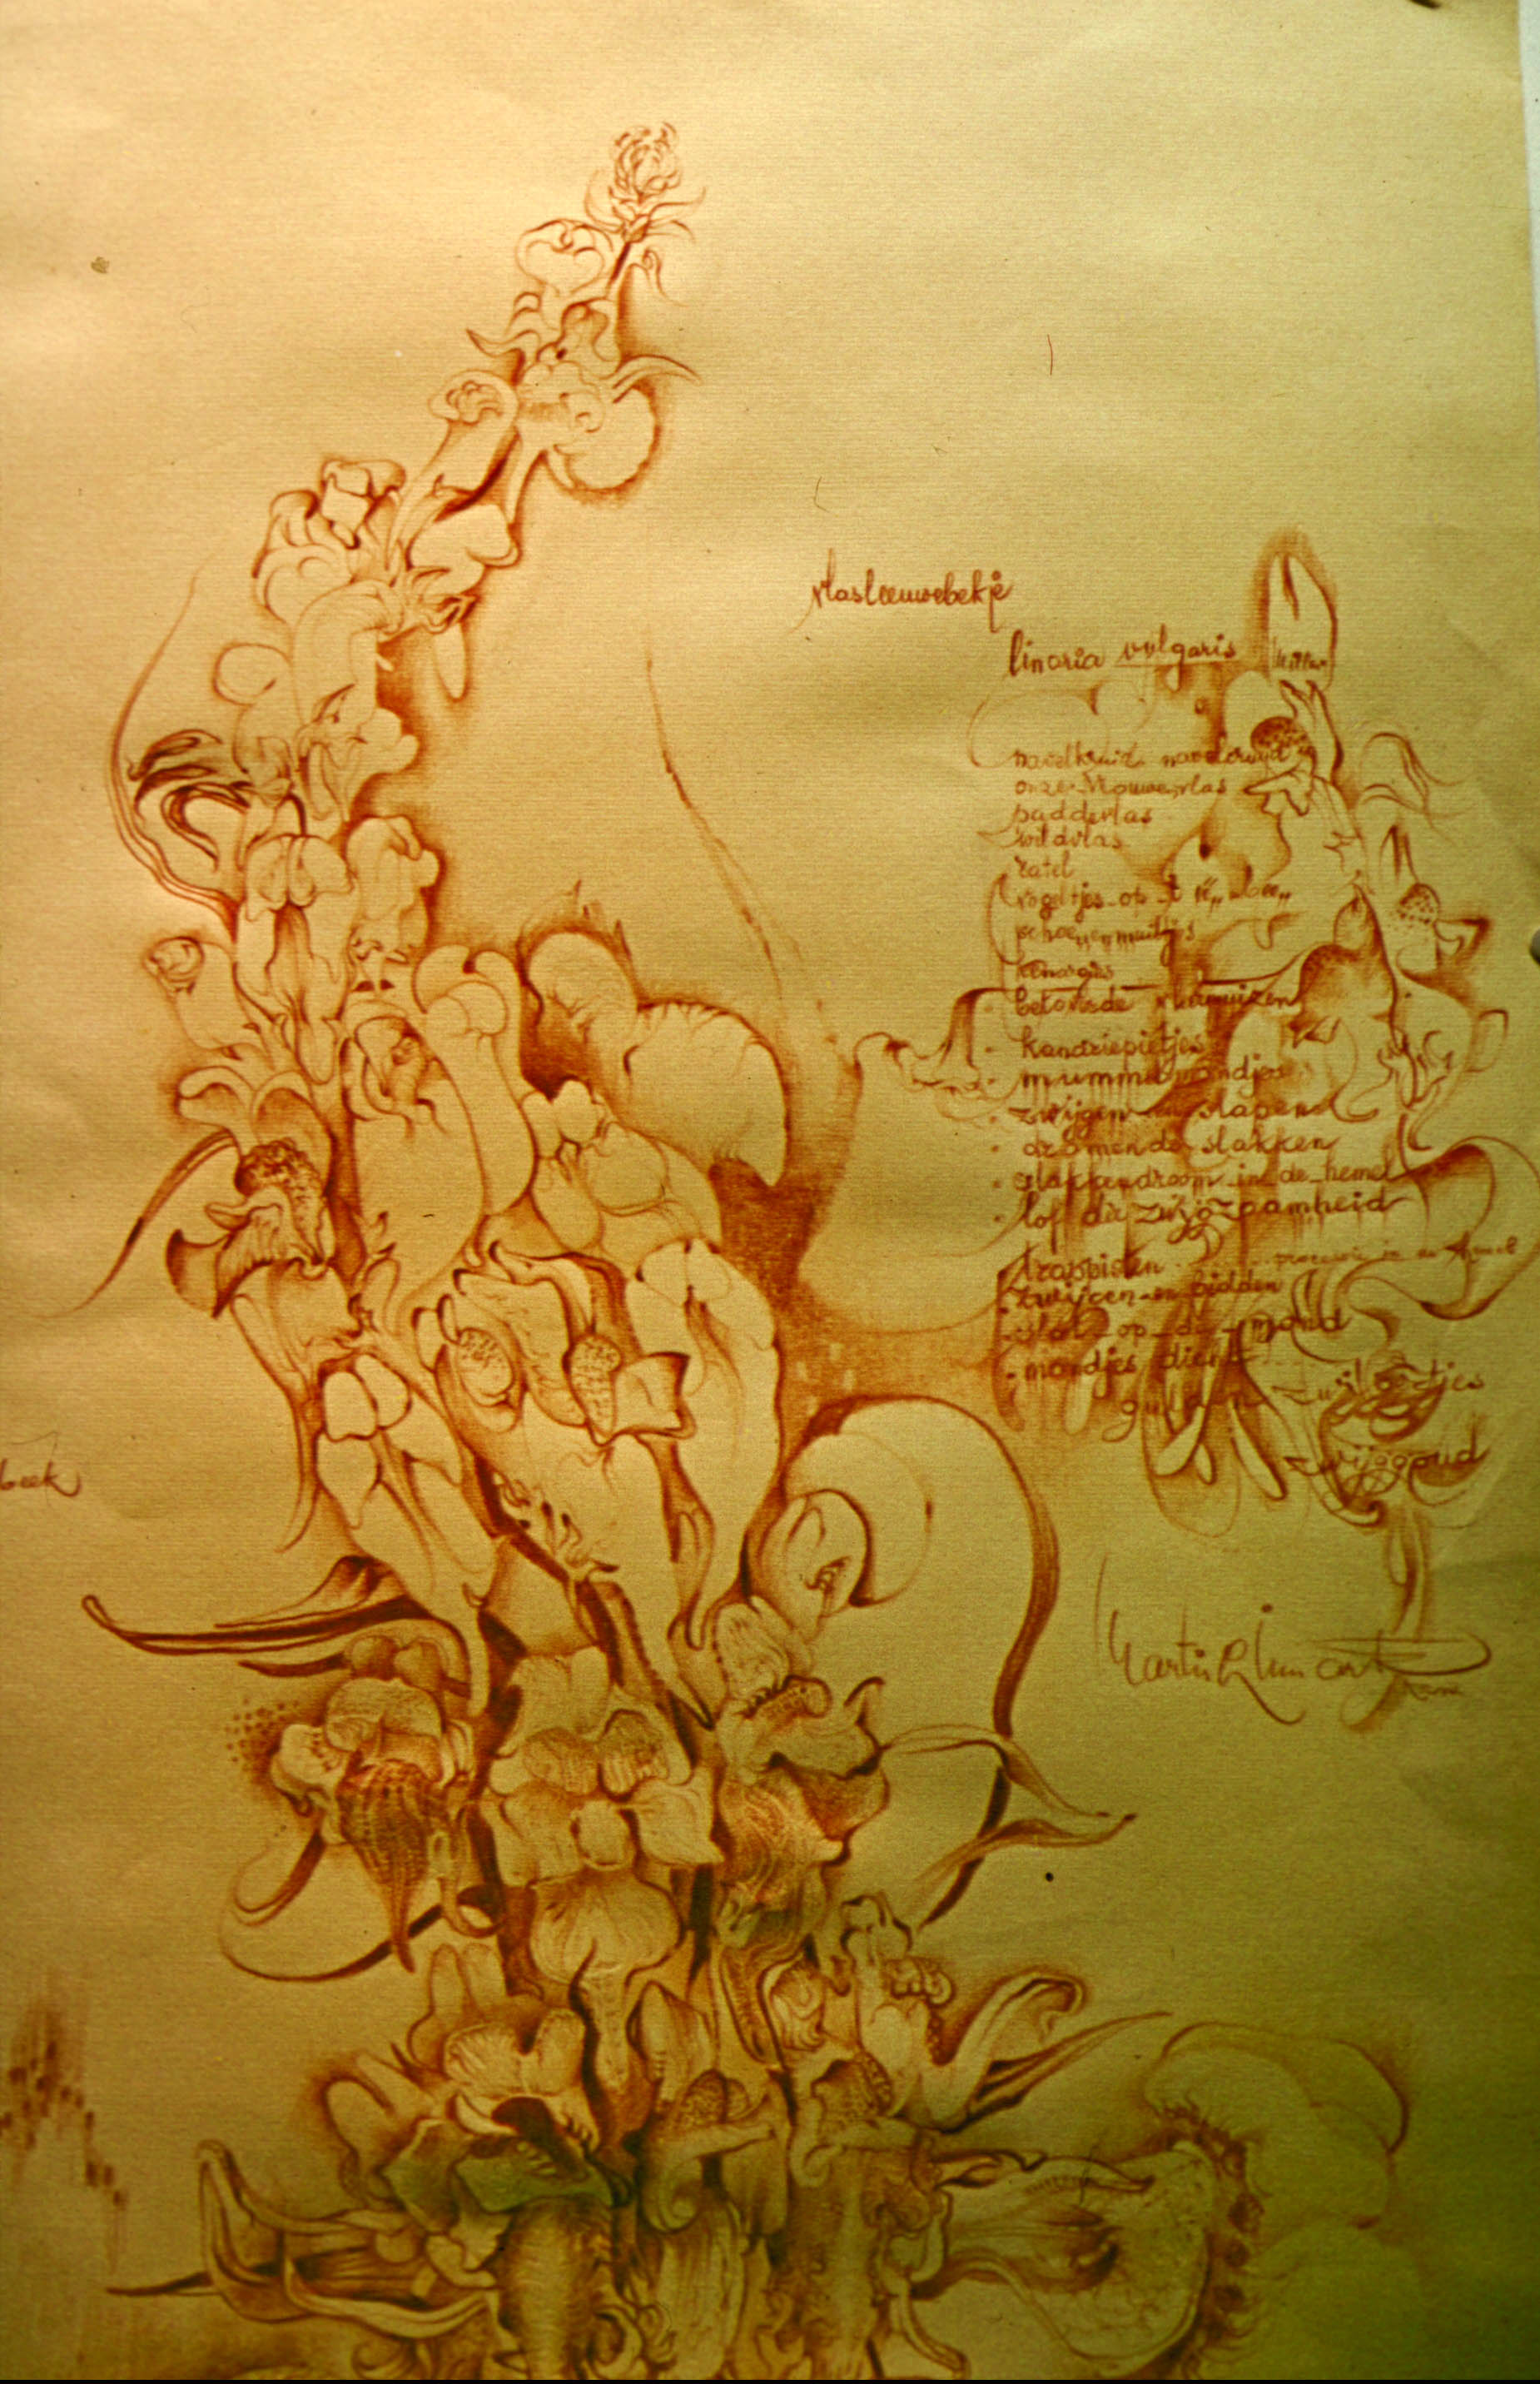 vlasleeuwebekje
linaria vulgaris Miller
navelkruid navelcruud
onze-Vrouwevlas
paddevlas
wildvlas
ratel
vogeltjes-op-t
schoenenmuiltjes
kanarjes
betoverde vleermuizen
- kandriepietjes
- mummelmondjes
- zwijgen en slapen
- dromende slakken
- slakkendroom-in-de-hemel
- lof der zwijgzaamheid
trappisten
- zwijgen-en-bidden
- slot-op-de-mond
- mondjes dicht
zwijgertjes
zwijggoud
beek